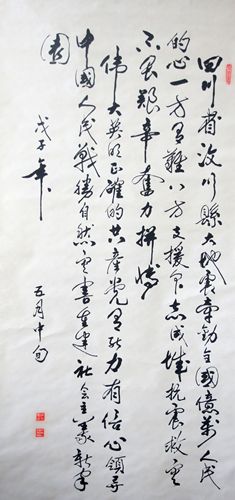 四川省汶川縣大地震牽動全國億萬人民
的心一方有難八方支援眾志成城抗震救灾
不畏艱辛奮力拼搏
伟大英明正確的共產党有能力有信心領导
中國人民戰勝自然灾害重建社会主義新家
園
戊子年
五月中旬